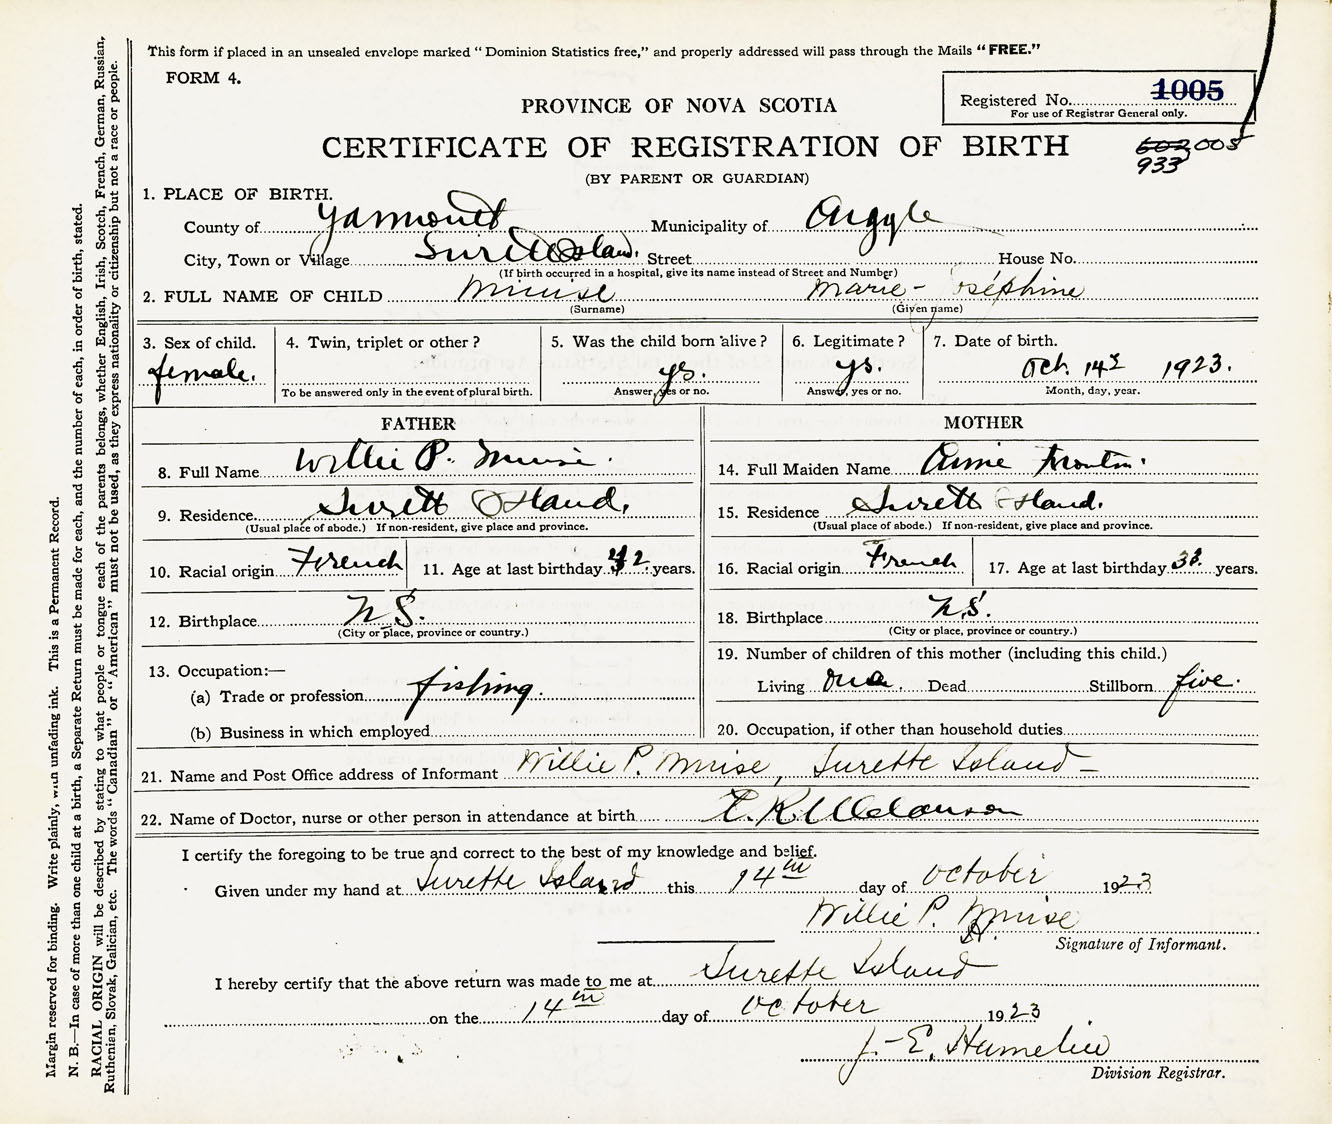 This form if placed in an unsealed envelope marked "Dominion Statistics free," and properly addressed will pass through the Mails "FREE."
FORM 4.
Registered No. 1005
For use of Registrar General only.
PROVINCE OF NOVA SCOTIA
CERTIFICATE OF REGISTRATION OF BIRTH
603 005
933
(BY PARENT OR GUARDIAN)
1. PLACE OF BIRTH.
County of Yarmouth Municipality of Argyle
City, Town or Village Surette Island. Street House No.
(If birth occurred in a hospital, give its name instead of Street and Number)
2. FULL NAME OF CHILD Muise Marie-Joséphine
(Surname) (Given name)
3. Sex of child. 4. Twin, triplet or other? 5. Was the child born alive? 6. Legitimate? 7. Date of birth.
female. yes. yes. Oct. 14th 1923.
To be answered only in the event of plural birth. Answer, yes or no. Answer, yes or no. Month, day, year.
FATHER MOTHER
8. Full Name Willie P. Muise. 14. Full Maiden Name Annie
9. Residence Surett Island. 15. Residence Surett Island.
(Usual place of abode.) If non-resident, give place and province. (Usual place of abode.) If non-resident, give place and province.
10. Racial origin French 11. Age at last birthday 42 years. 16. Racial origin French 17. Age at last birthday years.
12. Birthplace N.S. 18. Birthplace N.S.
(City or place, province or country.) (City or place, province or country.)
13. Occupation:— 19. Number of children of this mother (including this child.)
(a) Trade or profession fishing. Living one. Dead Stillborn five.
(b) Business in which employed 20. Occupation, if other than household duties
21. Name and Post Office address of Informant Willie P. Muise, Surette Island—
22. Name of Doctor, nurse or other person in attendance at birth Melanson
I certify the foregoing to be true and correct to the best of my knowledge and belief.
Given under my hand at Surette Island this 14th day of October 1923
Willie P. Muise
Signature of Informant.
I hereby certify that the above return was made to me at Surette Island
on the 14th day of October 1923
J.-E. Hamelin
Division Registrar.
Margin reserved for binding. Write plainly, with unfading ink. This is a Permanent Record.
N. B.—In case of more than one child at a birth, a Separate Return must be made for each, and the number of each, in order of birth, stated.
RACIAL ORIGIN will be described by stating to what people or tongue each of the parents belongs, whether English, Irish, Scotch, French, German, Russian,
Ruthenian, Slovak, Galician, etc. The words "Canadian" or "American" must not be used, as they express nationality or citizenship but not a race or people.